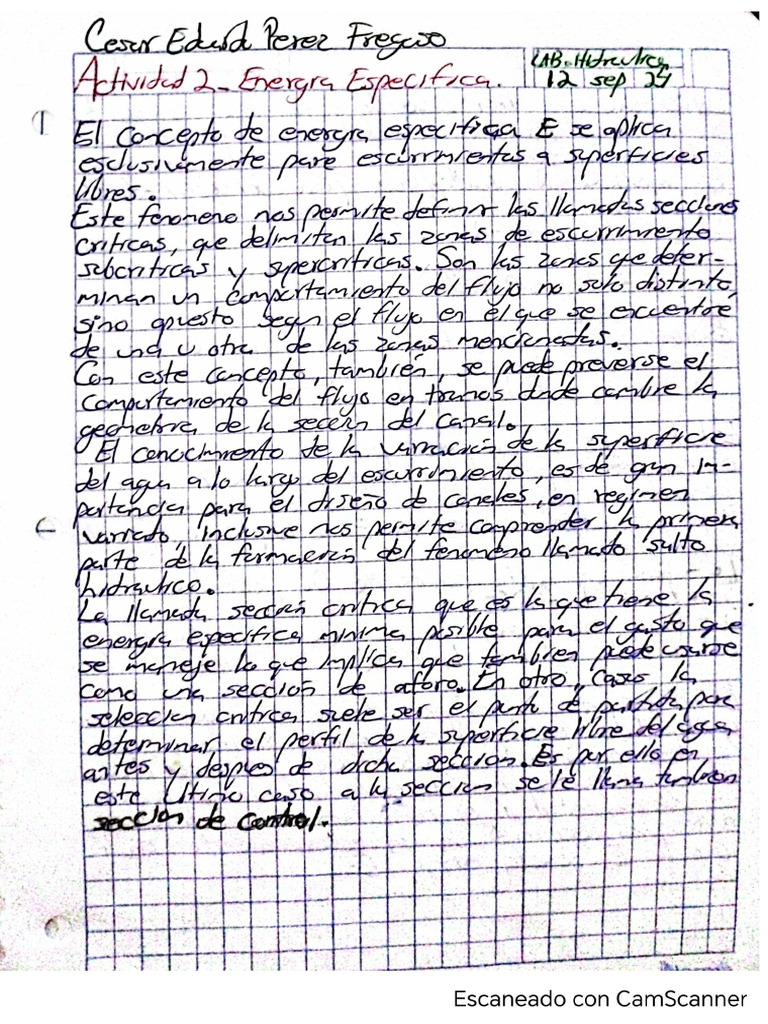 Cesar Eduardo Perez Fregoso
LAB. Hidraulica
Actividad 2 - Energia Especifica.
12 sep 24
El concepto de energia especifica E se aplica
esclusivamente para escurrimientos a superficies
libres.
Este fenomeno nos permite definir las llamadas secciones
criticas, que delimitan las zonas de escurrimiento
subcriticas y supercriticas. Son las zonas que deter-
minan un comportamiento del flujo no solo distinto,
sino opuesto segun el flujo en el que se encuentre
de una u otra de las zonas mencionadas.
Con este concepto, también, se puede preverse el
comportamiento del flujo en tramos donde cambie la
geometria de la seccion del canal.
El conocimiento de la variación de la superficie
del agua a lo largo del escurrimiento, es de gran im-
portancia para el diseño de canales, en regimen
variado, inclusive nos permite comprender la primera
parte de la formación del fenomeno llamado salto
hidraulico.
La llamada sección critica que es la que tiene la
energia especifica minima posible para el gasto que
se maneje lo que implica que tambien puede usarse
como una sección de aforo. En otro, Casos la
seleccion critica suele ser el punto de partida para
determinar el perfil de la superficie libre del agua
antes y despues de dicha sección. Es por ello en
este ultimo caso a la sección se le llama tambien
sección de control.
Escaneado con CamScanner